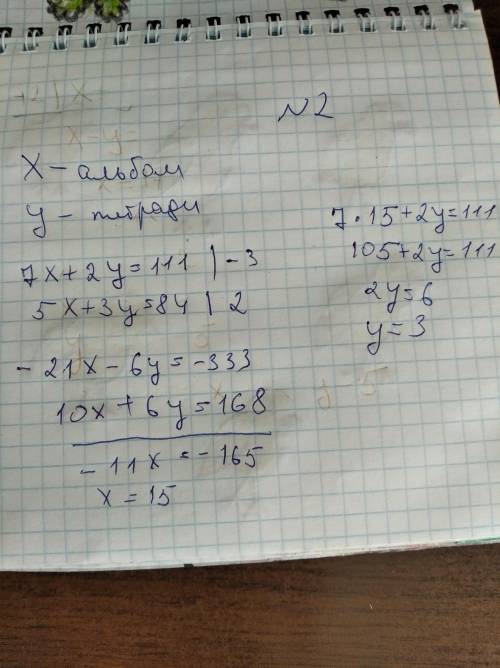 N2
X - альбом
y - тетради
7x + 2y = 111 | -3
5x + 3y = 84 | 2
- 21x - 6y = -333
10x + 6y = 168
- 11x = - 165
x = 15
7 · 15 + 2y = 111
105 + 2y = 111
2y = 6
y = 3